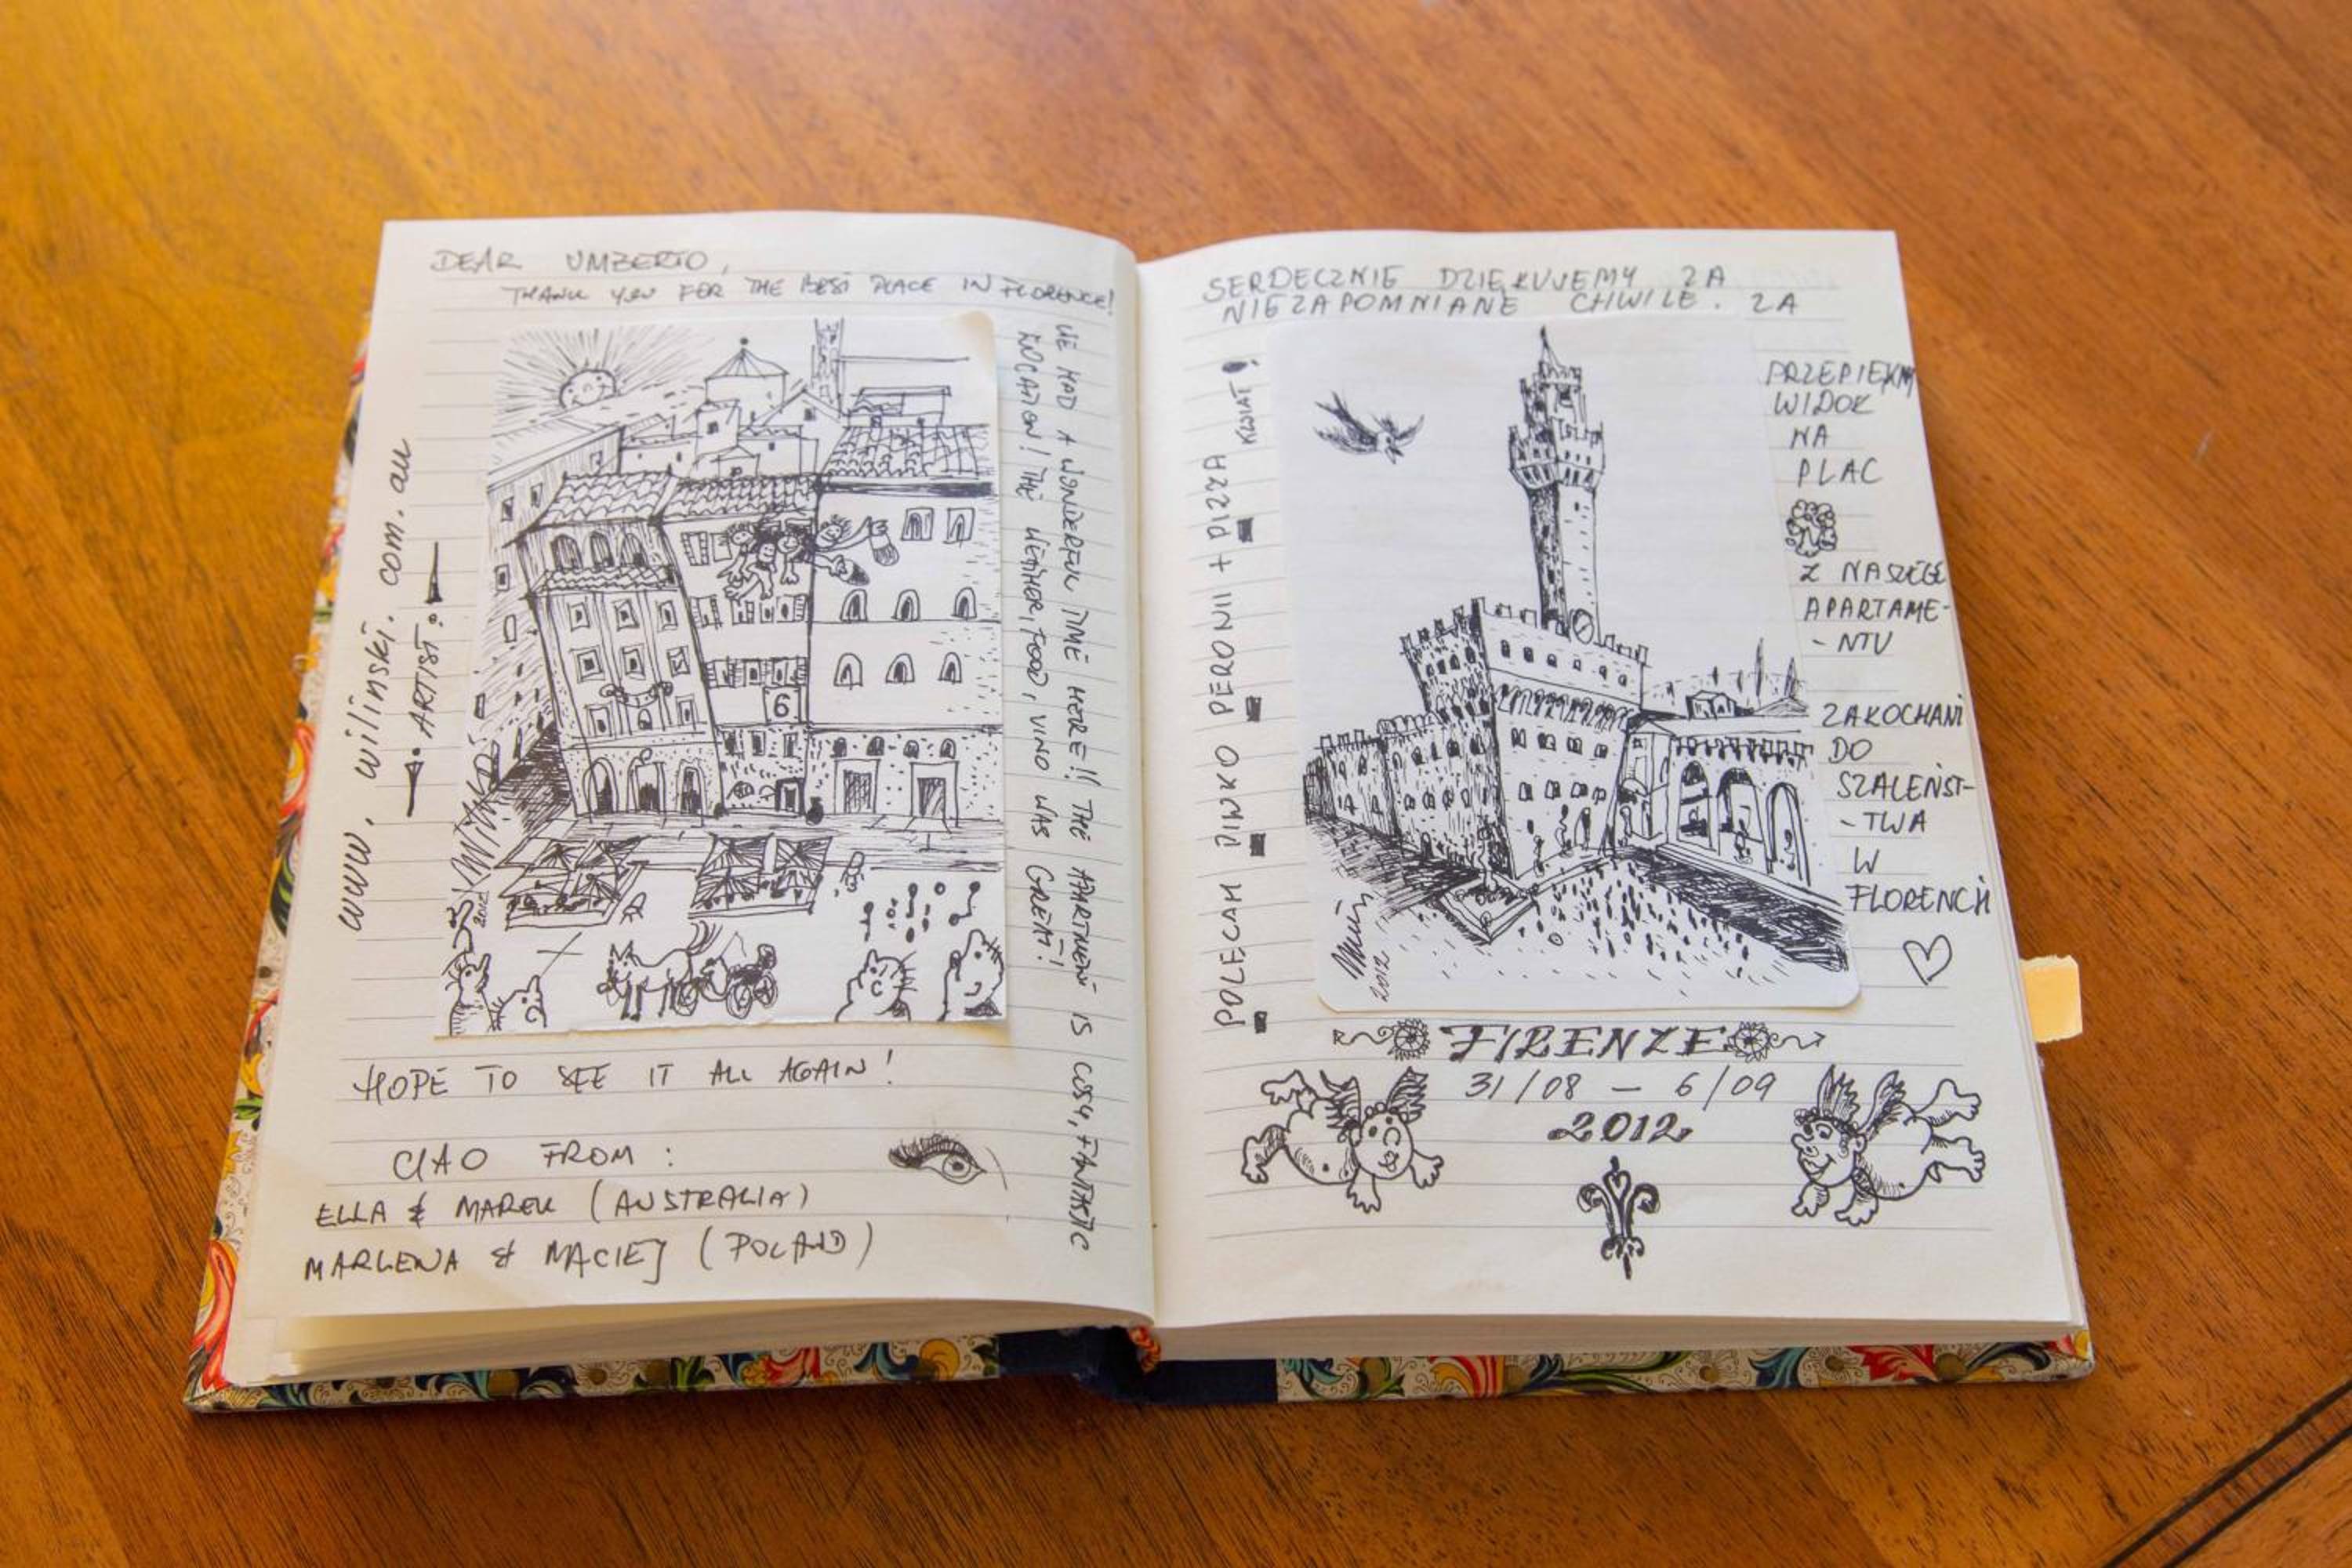 DEAR UMBERTO,
THANK YOU FOR THE BEST PLACE IN FLORENCE!
WE HAD A WONDERFUL TIME HERE!! THE APARTMENT IS COSY, FANTASTIC
LOCATION! THE WETHER, FOOD, VINO WAS GREAT!
www.wilinski.com.au
ARTIST
6
2012
HOPE TO SEE IT ALL AGAIN!
CIAO FROM:
ELLA & MAREK (AUSTRALIA)
MARLENA & MACIEJ (POLAND)
SERDECZNIE DZIĘKUJEMY ZA
NIEZAPOMNIANE CHWILE. ZA
PRZEPIEKNY
WIDOK
NA
PLAC
Z NASZEGO
APARTAME-
- NTU
ZAKOCHANI
DO
SZALEŃST-
- TWA
W
FLORENCJI
POLECAM PIWKO PERONII + PIZZA KWIAT!
2012
FIRENZE
31/08 - 6/09
2012